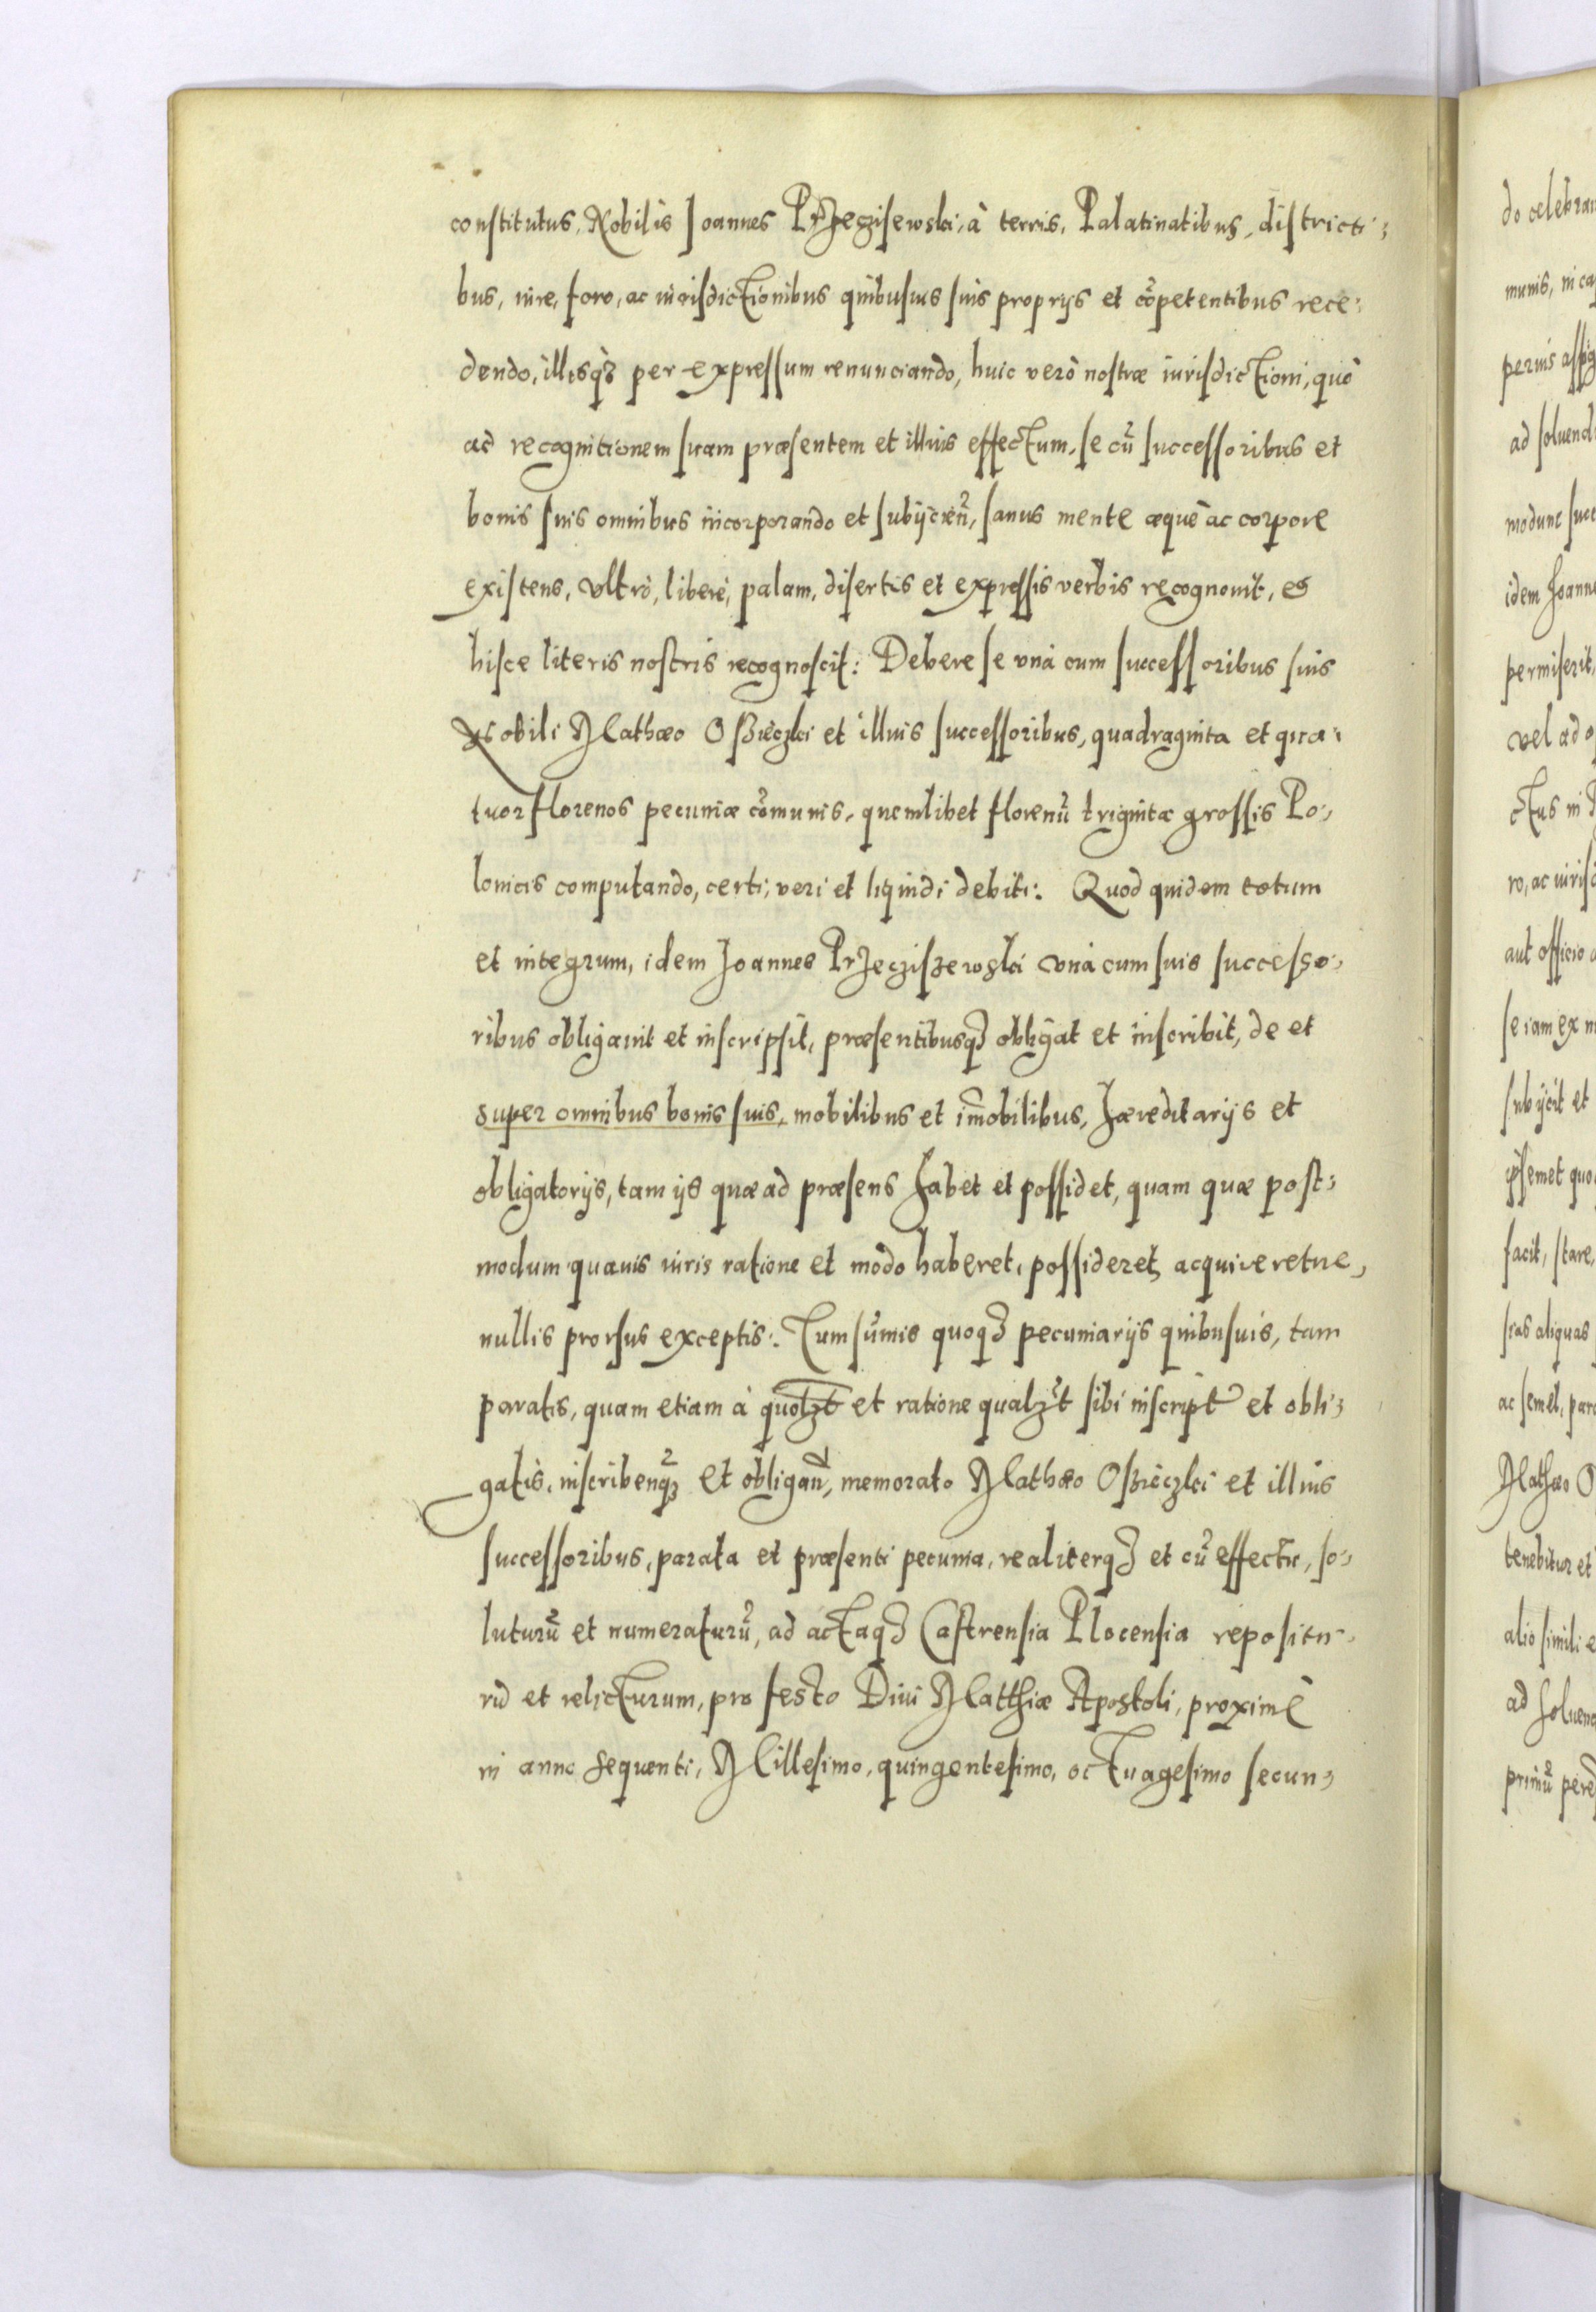 constitutus, Nobilis Joannes Przeczisewski, à terris, Palatinatibus, districti:
bus, iure, foro, ac iurisdictionibus quibusuis suis proprijs et cõpetentibus rece:
dendo, illisq3 per expressum renunciando, huic verò nostræ iurisdictioni, quò
ad recognitionem suam præsentem et illius effectum, se cũ successoribus et
bonis suis omnibus incorporando et subijcieñ, sanus mente æquè ac corpore
existens, vltrò, liberè, palam, disertis et expressis verbis recognouit, et
hisce literis nostris recognoscit: Debere se vnà cum successoribus suis
Nobili Mathæo Oßieczki et illius successoribus, quadraginta et qua:
tuor florenos pecuniæ cõmunis, quemlibet florenũ triginta grossis Po:
lonicis computando, certi, veri et liquidi debiti: Quod quidem totum
et integrum, idem Joannes Przecziszewski vnà cum suis successo:
ribus obligauit et inscripsit, præsentibusq3 obligat et inscribit, de et
super omnibus bonis suis, mobilibus et im̃obilibus, hæreditarijs et
obligatorijs, tam ijs quæ ad præsens habet et possidet, quam quæ post:
modum quauis iuris ratione et modo haberet, possideret, acquireretue,
nullis prorsus exceptis: Tum sũmis quoq3 pecuniarijs quibusuis, tam
paratis, quam etiam à quolzt et ratione qualzt sibi inscript et obli:
gatis, inscribenq3 et obligañ, memorato Mathæo Oßieczki et illius
successoribus, parata et præsenti pecunia, realiterq3 et cũ effectu, so:
luturũ et numeraturũ, ad actaq3 Castrensia Plocensia repositu:
rũ et relicturum, pro festo Diui Matthiæ Apostoli, proximè
in anno sequenti, Millesimo, quingentesimo, octuagesimo secun:
do celebran
munis, in ca
ad soluend
idem Joanne
permiserit,
vel ad
ctus in
ro, ac iurisd
aut officio
se iam ex
subijcit et
ipsemet quo
facit, stare,
aliquas
ac semel,
Mathæo O
tenebitur et
alio simili
ad soluen
primũ